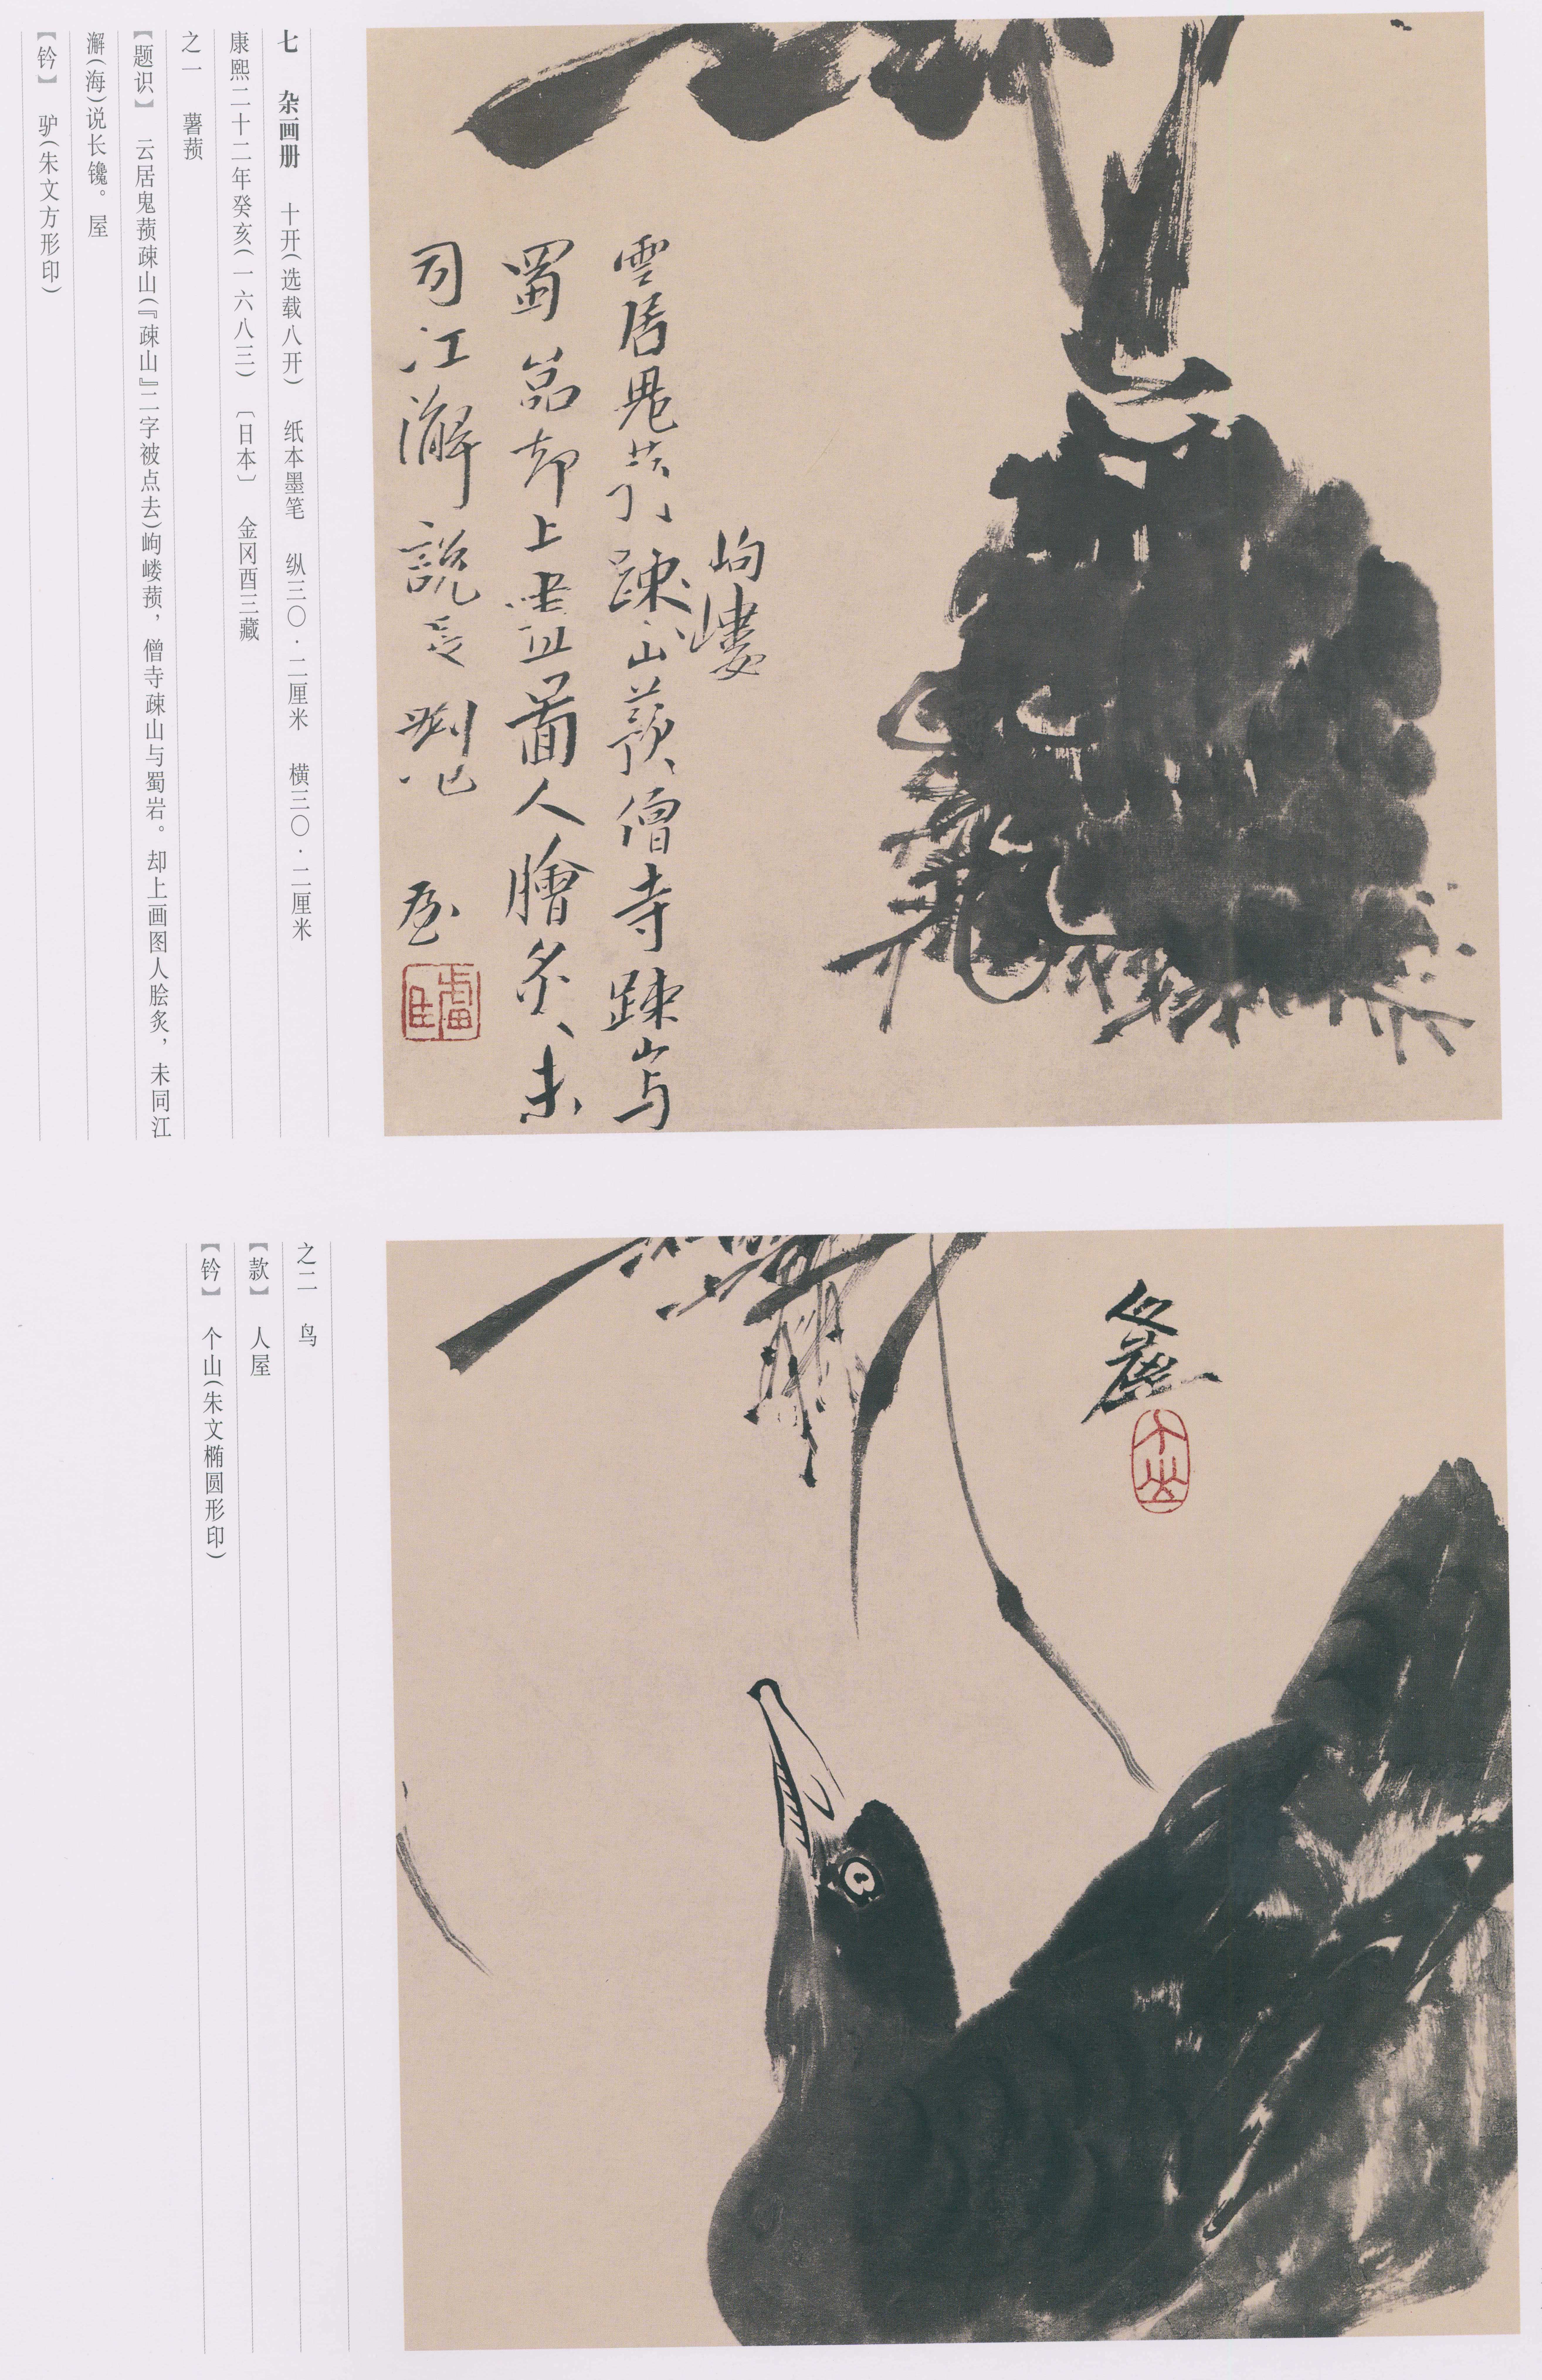 岣嶁
雲居鬼蓣踈山蓣僧寺踈山与
蜀嵒却上畫啚人膾炙未
同江澥說長鑱
屋
七 杂画册 十开(选载八开) 纸本墨笔 纵三〇·二厘米 横三〇·二厘米
康熙二十二年癸亥(一六八三) 〔日本〕 金冈酉三藏
之一 薯蓣
【题识】 云居鬼蓣疎山(『疎山』二字被点去)岣嵝蓣，僧寺疎山与蜀岩。却上画图人脍炙，未同江
澥(海)说长镵。屋
【钤】 驴(朱文方形印)
人屋
个山
之二 鸟
【款】 人屋
【钤】 个山(朱文椭圆形印)